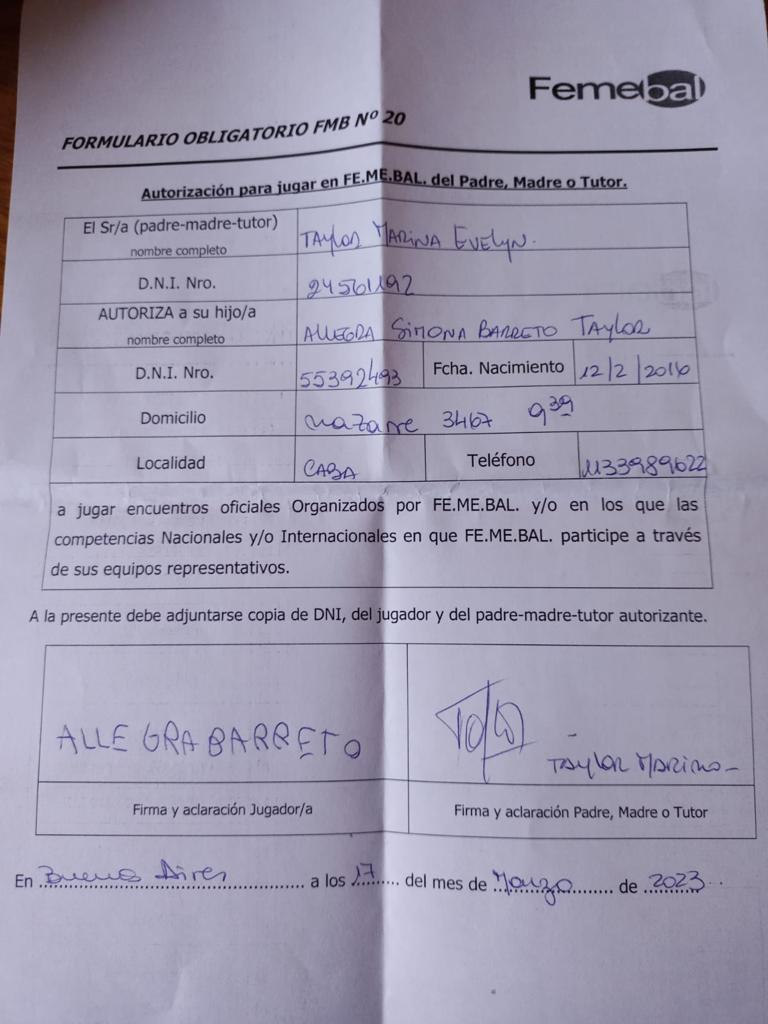 Femebal
FORMULARIO OBLIGATORIO FMB Nº 20
Autorización para jugar en FE.ME.BAL. del Padre, Madre o Tutor.
El Sr/a (padre-madre-tutor)
nombre completo
TAYLOR MARINA EVELYN.
D.N.I. Nro.
24561192
AUTORIZA a su hijo/a
nombre completo
ALLEGRA SIMONA BARRETO TAYLOR
D.N.I. Nro.
55392493
Fcha. Nacimiento
12/2/2016
Domicilio
3467
Localidad
CABA
Teléfono
1133989622
a jugar encuentros oficiales Organizados por FE.ME.BAL. y/o en los que las
competencias Nacionales y/o Internacionales en que FE.ME.BAL. participe a través
de sus equipos representativos.
A la presente debe adjuntarse copia de DNI, del jugador y del padre-madre-tutor autorizante.
ALLEGRA BARRETO
TAYLOR
Firma y aclaración Jugador/a
Firma y aclaración Padre, Madre o Tutor
En Buenos Aires a los 17 del mes de Marzo de 2023